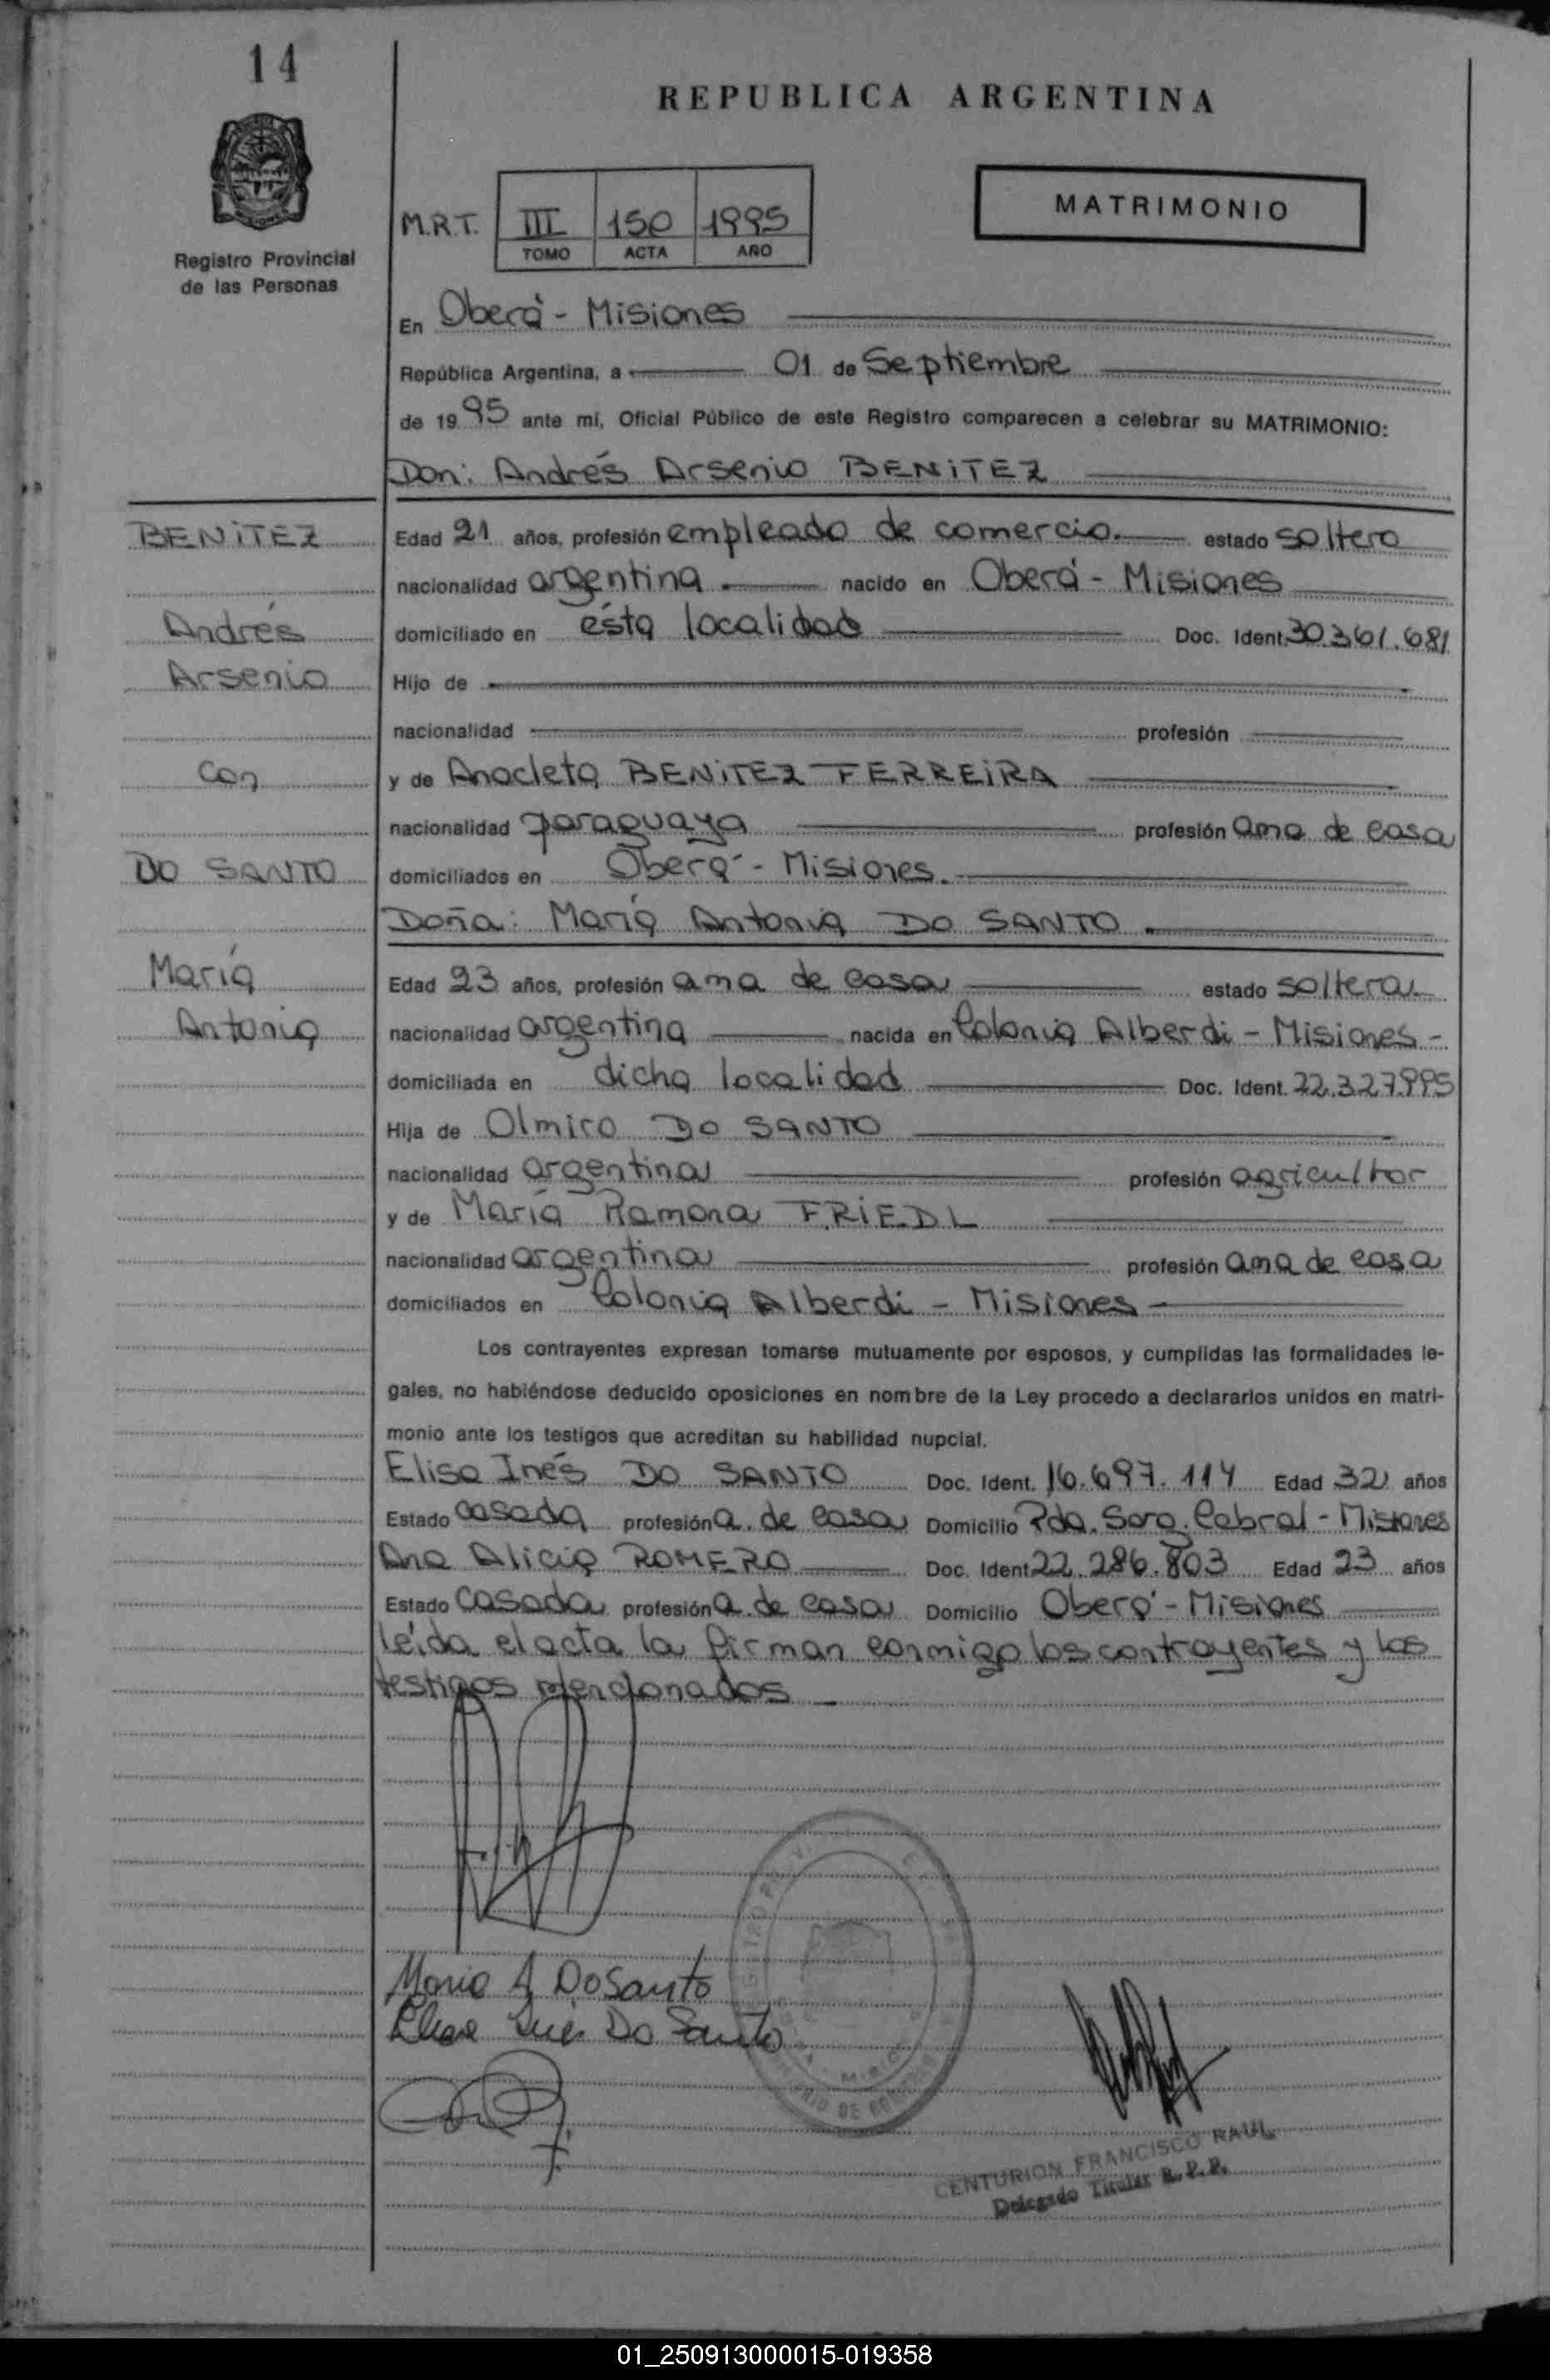 14
REPUBLICA ARGENTINA
MATRIMONIO
M.R.T. III 150 1995
TOMO ACTA AÑO
Registro Provincial
de las Personas
En Oberá - Misiones
República Argentina, a 01 de Septiembre
de 1995 ante mí, Oficial Público de este Registro comparecen a celebrar su MATRIMONIO:
Don: Andrés Arsenio BENiTEZ
BENiTEZ Edad 21 años, profesión empleado de comercio. estado soltero
nacionalidad argentina nacido en Oberá - Misiones
Andrés domiciliado en ésta localidad Doc. Ident. 30.361.681
Arsenio Hijo de
nacionalidad profesión
Con y de Anacleta BENiTEZ FERREiRA
nacionalidad paraguaya profesión ama de casa
DO SANTO domiciliados en Oberá - Misiones.
Doña: María Antonia DO SANTO
María Edad 23 años, profesión ama de casa estado soltera
Antonia nacionalidad argentina nacida en Colonia Alberdi - Misiones -
domiciliada en dicha localidad Doc. Ident. 22.327.995
Hija de Olmiro DO SANTO
nacionalidad argentina profesión agricultor
y de María Ramona FRiEDL
nacionalidad argentina profesión ama de casa
domiciliados en Colonia Alberdi - Misiones -
Los contrayentes expresan tomarse mutuamente por esposos, y cumplidas las formalidades le-
gales, no habiéndose deducido oposiciones en nombre de la Ley procedo a declararlos unidos en matri-
monio ante los testigos que acreditan su habilidad nupcial.
Elisa Inés DO SANTO Doc. Ident. 16.697.114 Edad 32 años
Estado casada profesión a. de casa Domicilio Pda. Sarg. Cabral - Misiones
Ana Alicia ROMERO Doc. Ident. 22.286.803 Edad 23 años
Estado casada profesión a. de casa Domicilio Oberá - Misiones
leída el acta la firman conmigo los contrayentes y los
testigos mencionados
Maria A DoSanto
Elisa Inés Do Santo
CENTURION FRANCISCO RAUL
Delegado Titular R. P. P.
01_250913000015-019358